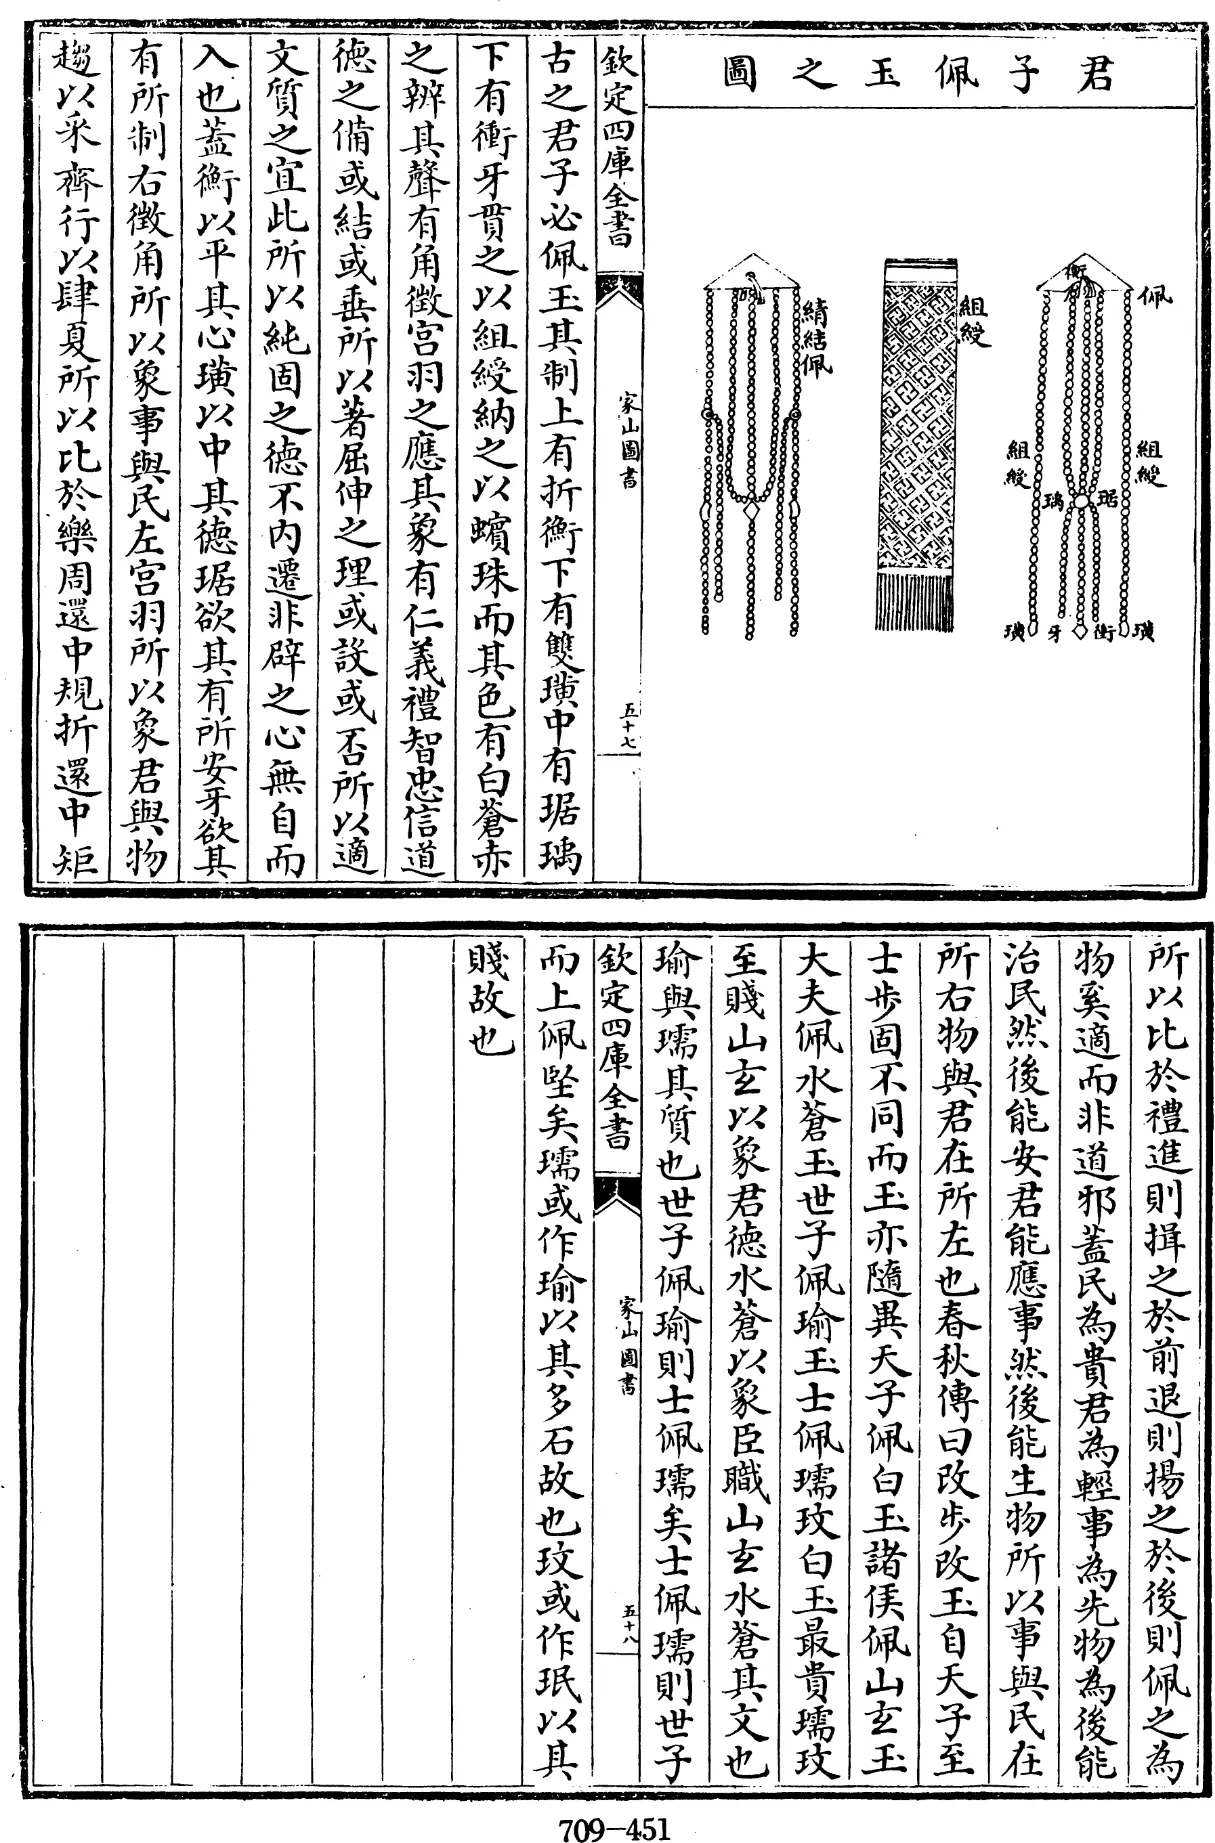 君子佩玉之圖
佩
衡
組綬
組綬
琚
瑀
璜
衝
牙
璜
組綬
綪結佩
欽定四庫全書
家山圖書
五十七
古之君子必佩玉其制上有折衡下有雙璜中有琚瑀
下有衝牙貫之以組綬納之以蠙珠而其色有白蒼赤
之辨其聲有角徵宮羽之應其象有仁義禮智忠信道
德之備或結或垂所以著屈伸之理或設或否所以適
文質之宜此所以純固之德不內遷非辟之心無自而
入也蓋衡以平其心璜以中其德琚欲其有所安牙欲其
有所制右徵角所以象事與民左宮羽所以象君與物
趨以采齊行以肆夏所以比於樂周還中規折還中矩
所以比於禮進則揖之於前退則揚之於後則佩之為
物奚適而非道邪蓋民為貴君為輕事為先物為後能
治民然後能安君能應事然後能生物所以事與民在
所右物與君在所左也春秋傳曰改步改玉自天子至
士步固不同而玉亦隨異天子佩白玉諸侯佩山玄玉
大夫佩水蒼玉世子佩瑜玉士佩瓀玟白玉最貴瓀玟
至賤山玄以象君德水蒼以象臣職山玄水蒼其文也
瑜與瓀其質也世子佩瑜則士佩瓀矣士佩瓀則世子
欽定四庫全書
家山圖書
五十八
而上佩堅矣瓀或作瑜以其多石故也玟或作珉以其
賤故也
709-451